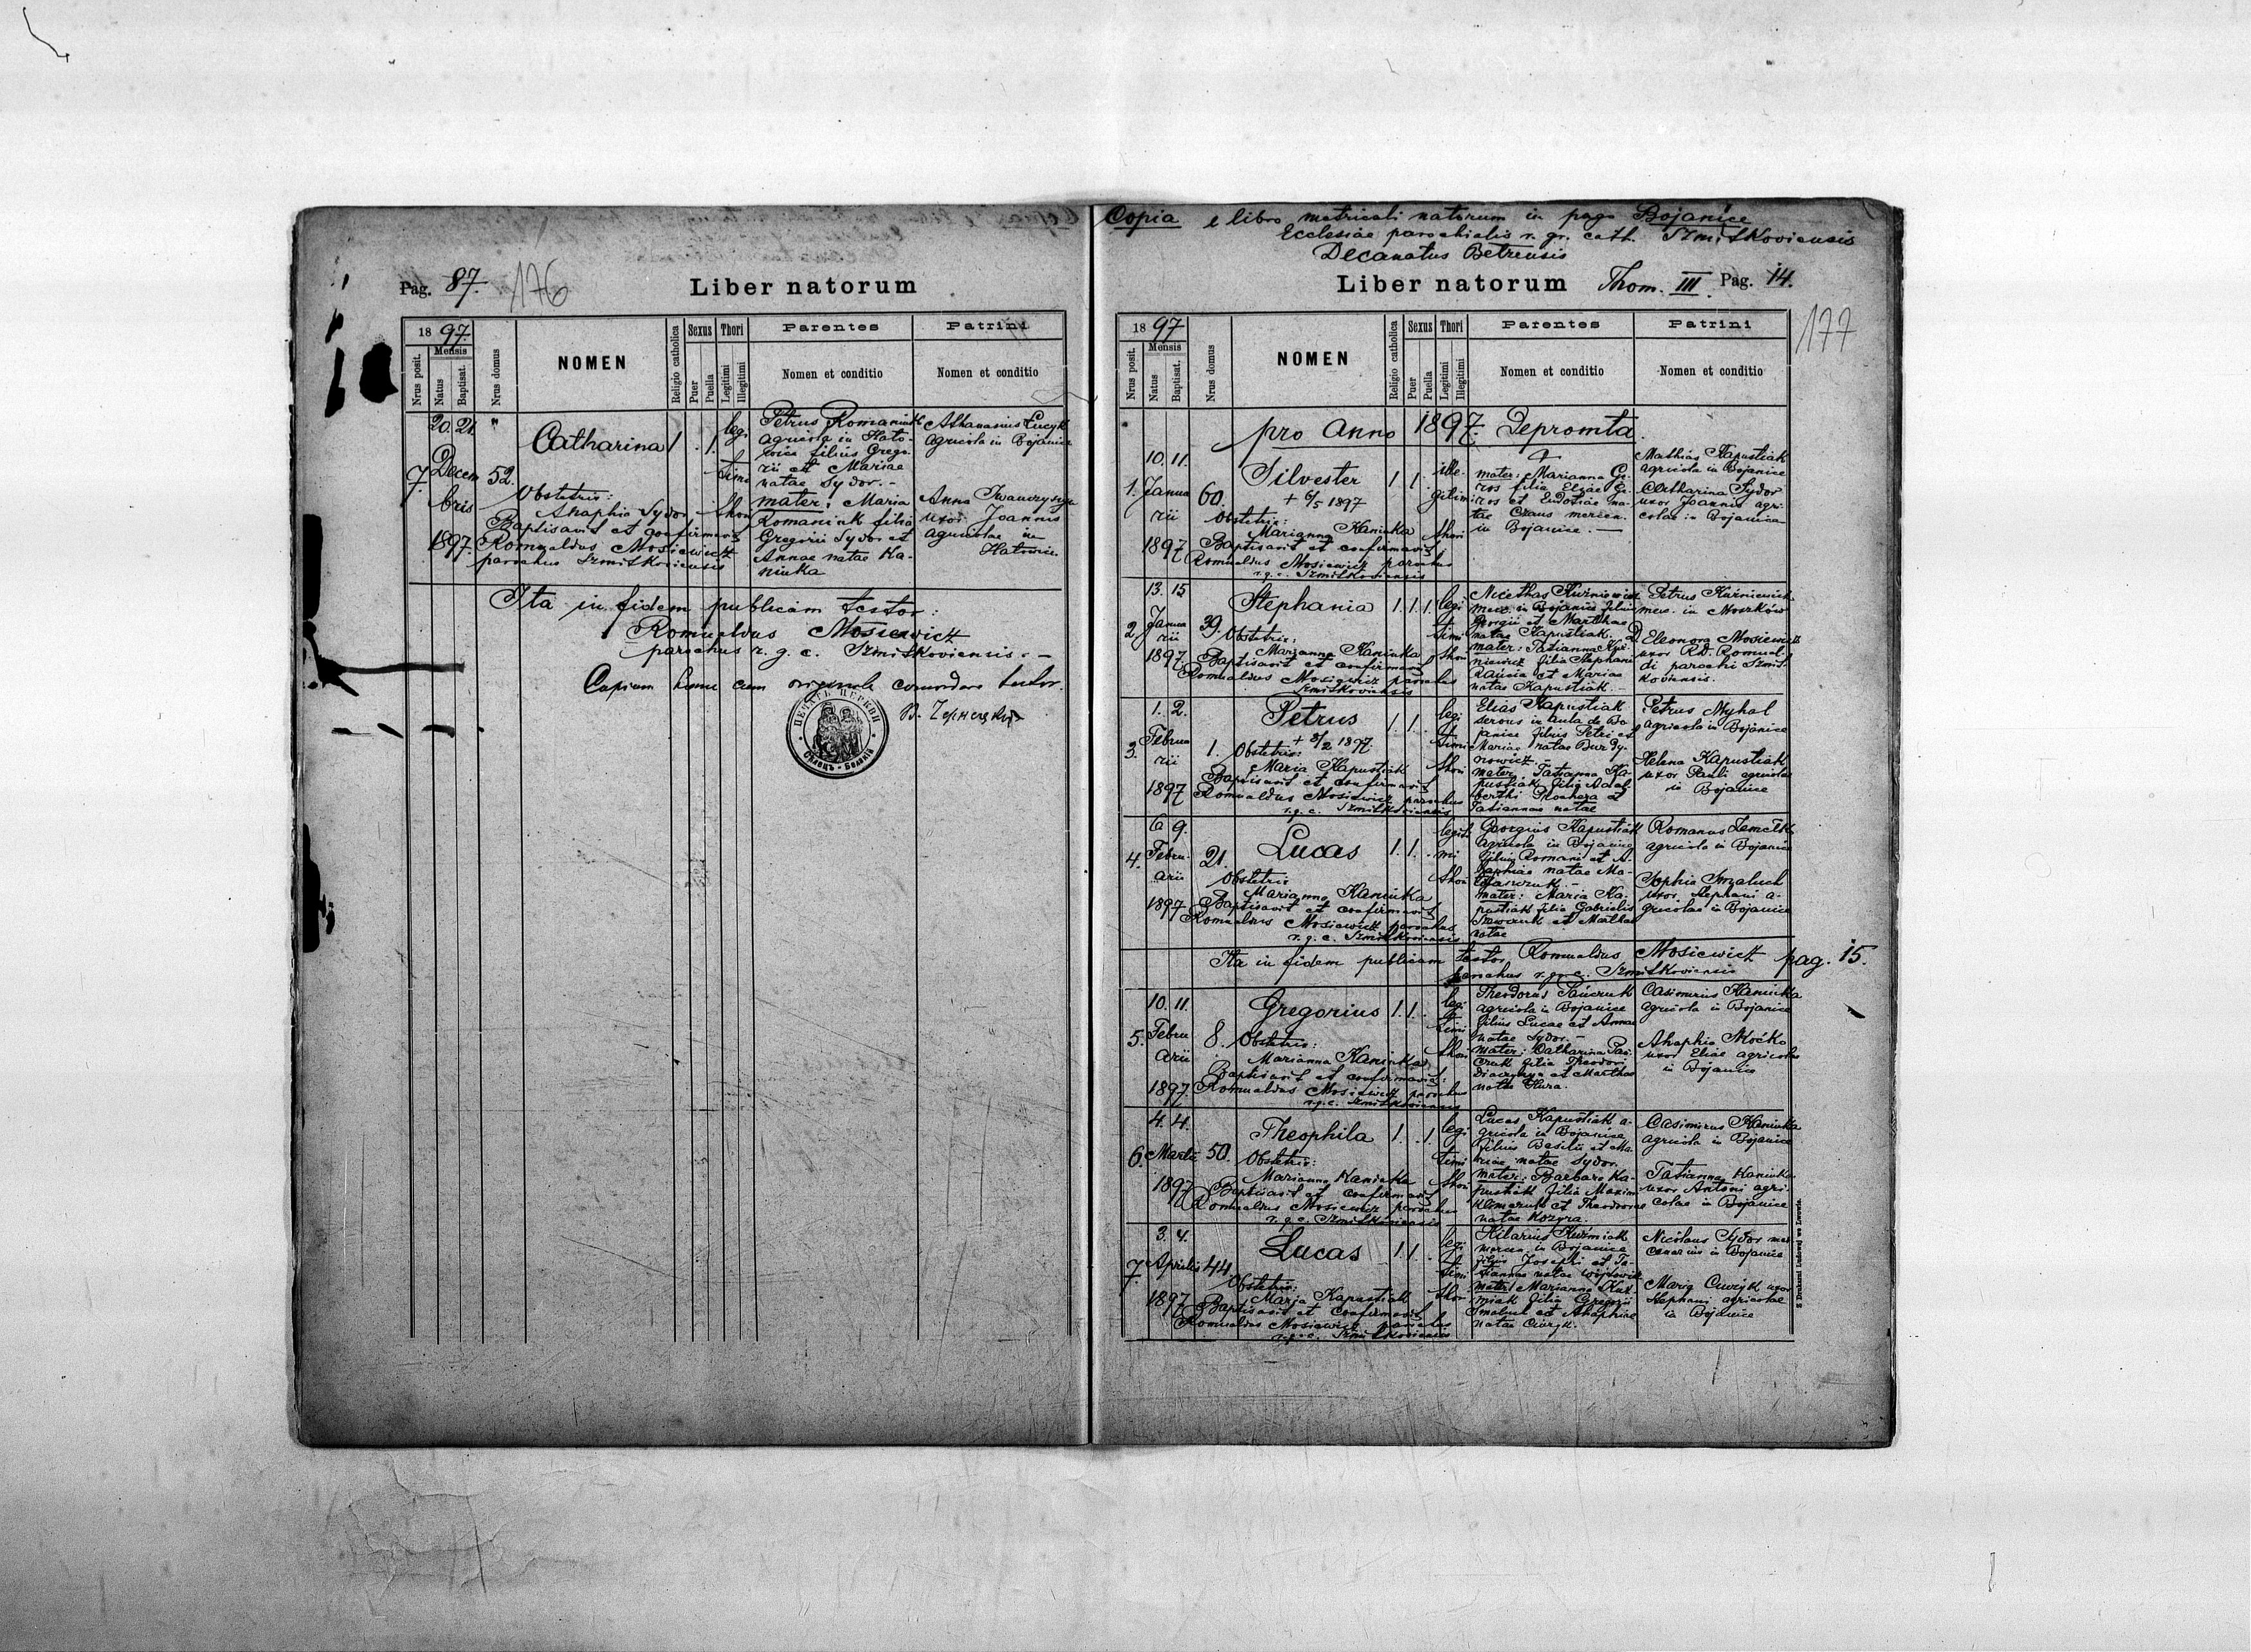 Pag. 87. 176
Liber natorum
18 97.
Nrus posit.
Mensis
Natus
Baptisat.
Nrus domus
NOMEN
Religio catholica
Sexus
Puer
Puella
Thori
Legitimi
Illegitimi
Parentes
Nomen et conditio
Patrini
Nomen et conditio
20. 21.
7. Decem
bris
1897.
52.
Catharina 1 . 1.
legi
timi
thori
Obstetrix:
Ahaphia Sydor
Baptisavit et confirmavit
Romualdus Mosiewicz
parochus Szmitkoviensis
Petrus Romaniuk
agricola in
filius Grego
rii et Mariae
natae Sydor. -
mater: Maria
Romaniak filia
Gregorii Sydor et
Annae natae Ka-
niuka
Athanasius
agricola in Bojanice
Anna
uxor Joannis
agricolae in
Ita in fidem publicam testor:
Romualdus Mosiewicz
parochus r. g. c. Szmitkoviensis. -
Copiam hanc cum originale testor.
Copia e libro matricali natorum in pago Bojanice
Ecclesiae parochialis r. gr. cath. Szmitkoviensis
Decanatus
Liber natorum Thom. III. Pag. 14.
177
18 97
Nrus posit.
Mensis
Natus
Baptisat.
Nrus domus
NOMEN
Religio catholica
Sexus
Puer
Puella
Thori
Legitimi
Illegitimi
Parentes
Nomen et conditio
Patrini
Nomen et conditio
pro anno 1897. Depromta.
10. 11.
1. Janua
rii
1897
60.
Silvester 1 1.
+ 6/5 1897
Obstetrix:
Marianna Kaniuka
Baptisavit et confirmavit
Romualdus Mosiewicz parochus
r. g. c. Szmitkoviensis
ille
gitimi
thori
mater: Marianna
filia Eliae
et Eudoxiae na-
tae
in Bojanice. -
Mathias Kapustiak
agricola in Bojanice
Catharina Sydor
uxor Joannis agri-
colae in Bojanice
13. 15
2. Janua
rii
1897
39.
Stephania 1. 1. 1.
Obstetrix:
Marianna Kaniuka
Baptisavit et confirmavit
Romualdus Mosiewicz parochus
Szmitkoviensis
legi
timi
thori
Nicethas Kuźniewicz
merc. in Bojanice filius
Georgii et Marthae
natae Kapustiak.
mater: Tatianna Kuź-
niewicz filia Stephani
et Mariae
natae Kapustiak. -
Petrus Kuźniewicz
merc. in Moszków
Eleonora Mosiewicz
uxor RD. Romual-
di parochi Szmit-
koviensis.
1. 2.
3. Februa
rii
1897
1.
Petrus 1. 1.
+ 8/2 1897.
Obstetrix:
Maria Kapustiak
Baptisavit et confirmavit
Romualdus Mosiewicz parochus
r. g. c. Szmitkoviensis
legi
timi
thori
Elias Kapustiak
in aula de Bo
janice filius Petri et
Mariae natae
mater. Tatianna Ka-
pustiak filia Adal-
berthi et
Tatiannae natae
Petrus Myhal
agricola in Bojanice
Helena Kapustiak
uxor Pauli agricolae
in Bojanice
6 9.
4. Febru-
arii
1897
21.
Lucas 1. 1.
Obstetrix
Marianna Kaniuka
Baptisavit et confirmavit
Romualdus Mosiewicz parochus
r. g. c. Szmitkoviensis
legiti
mi
thori
Georgius Kapustiak
agricola in Bojanice
filius Romani et A-
haphiae natae
mater: Maria Ka-
pustiak filia Gabrielis
et Marthae
natae
Romanus
agricola in Bojanice
Sophia Smaluch
uxor Stephani a-
gricolae in Bojanice
Ita in fidem publicam testor Romualdus Mosiewicz pag. 15.
parochus r. gr. c. Szmitkoviensis
10. 11.
5. Febru
arii
1897.
8.
Gregorius 1. 1.
Obstetrix:
Marianna Kaniuka
Baptisavit et confirmavit:
Romualdus Mosiewicz parochus
r. g. c. Szmitkoviensis
legi
timi
thori
Theodorus
agricola in Bojanice
filius Lucae et Annae
natae Sydor. -
mater: Catharina
filia Theodori
et Marthae
natae
Casimirus Kaniuka
agricola in Bojanice
Ahaphia
uxor Eliae agricolae
in Bojanice
4. 4.
6. Martii
1897
50.
Theophila 1. . 1.
Obstetrix:
Marianna Kaniuka
Baptisavit et confirmavit
Romualdus Mosiewicz parochus
r. g. c. Szmitkoviensis
legi
timi
thori
Lucas Kapustiak a-
gricola in Bojanice
filius Basilii et Ma-
riae natae Sydor.
mater: Barbara Ka-
pustiak filia Maximi
et Theodorae
natae Kozyra.
Casimirus Kaniuka
agricola in Bojanice
Tatianna Kaniuka
uxor Antoni agri-
colae in Bojanice
3. 4.
7. Aprilis
1897
44.
Lucas 1. 1.
Obstetrix:
Marja Kapustiak
Baptisavit et confirmavit
Romualdus Mosiewicz parochus
r. g. c. Szmitkoviensis
legi
timi
thori
Hilarius Kuźmiak
mercen. in Bojanice
filius Josephi et Ta-
tiannae natae
mater: Marianna Kuź-
miak filia Gregorii
Smaluch et Ahaphiae
natae
Nicolaus Sydor mer
cenarius in Bojanice
Maria uxor
Stephani agricolae
in Bojanice
Z Drukarni Ludowej we Lwowie.